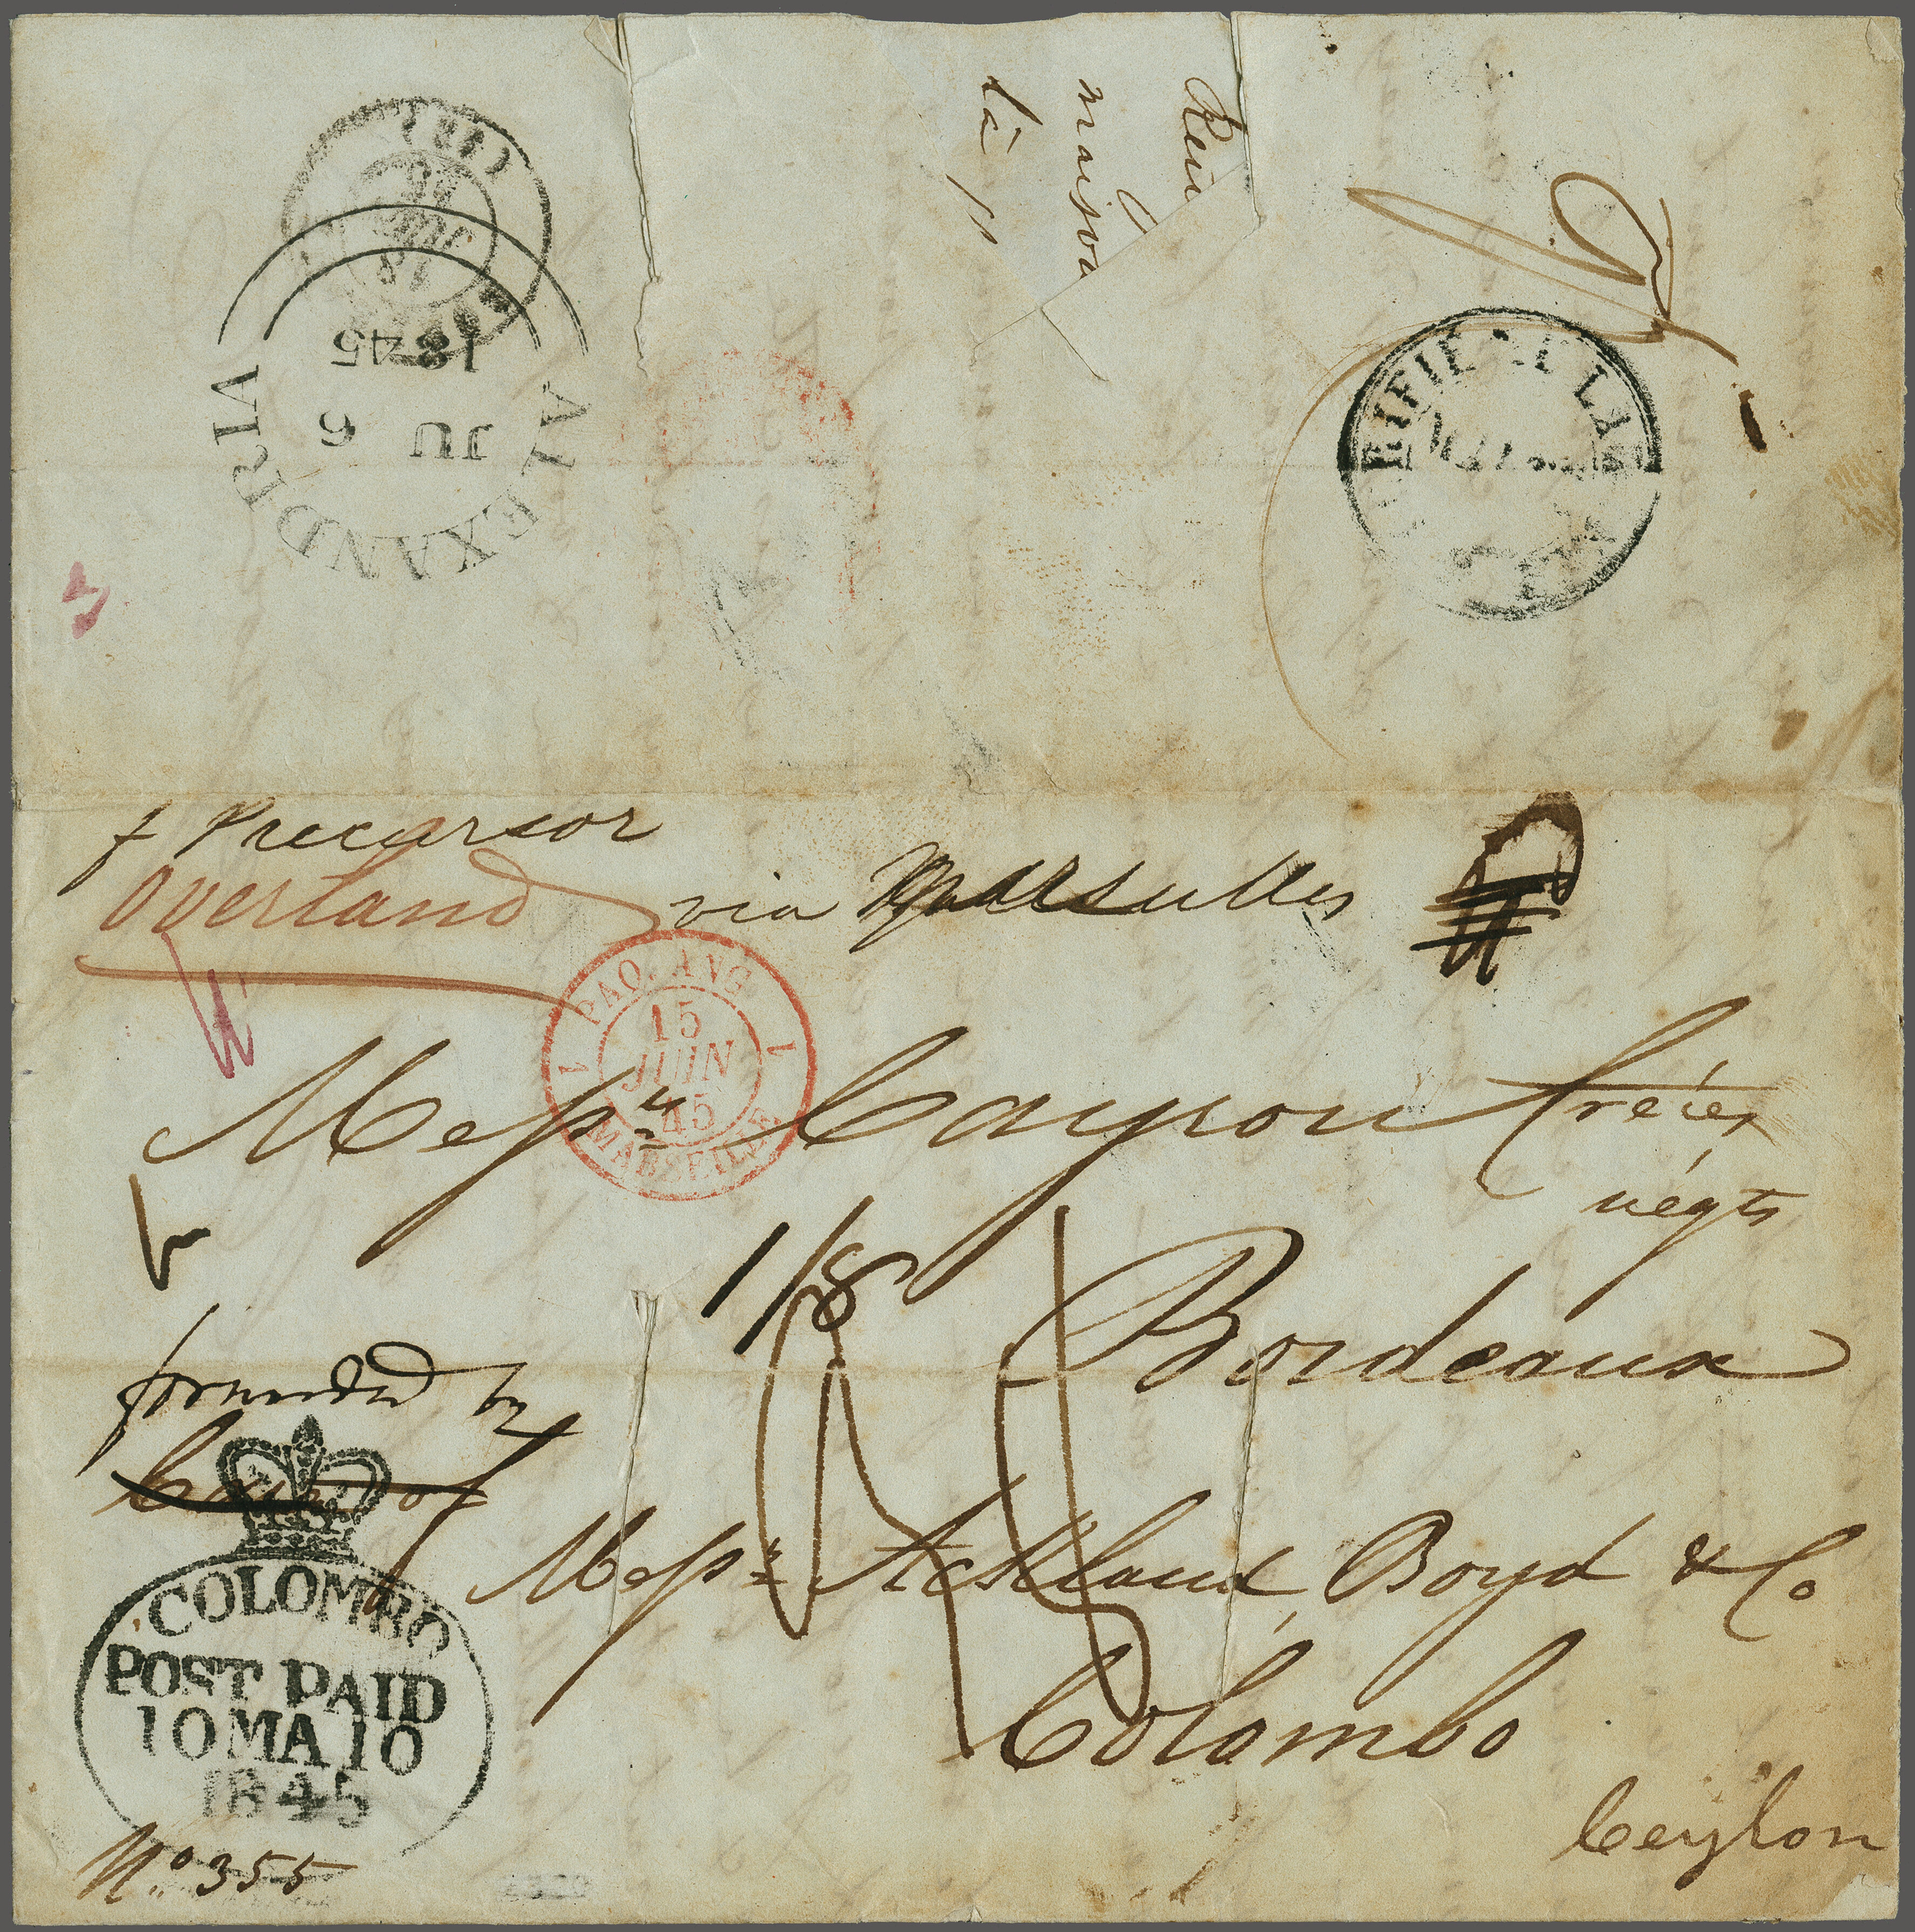 Reu
maison
là p
ALEXANDRIA
JU 6
1845
+ Precursor
Overland via Marseilles
PAQ. ANG
1 1
15
JUIN
45
MARSEILLE
Messrs Cayrou frères
négts
1/8
Bordeaux
forwarded by
Care of
Messrs Ackland, Boyd & Co
COLOMBO
POST PAID
10 MA 10
1845
Colombo
Ceylon
No. 355